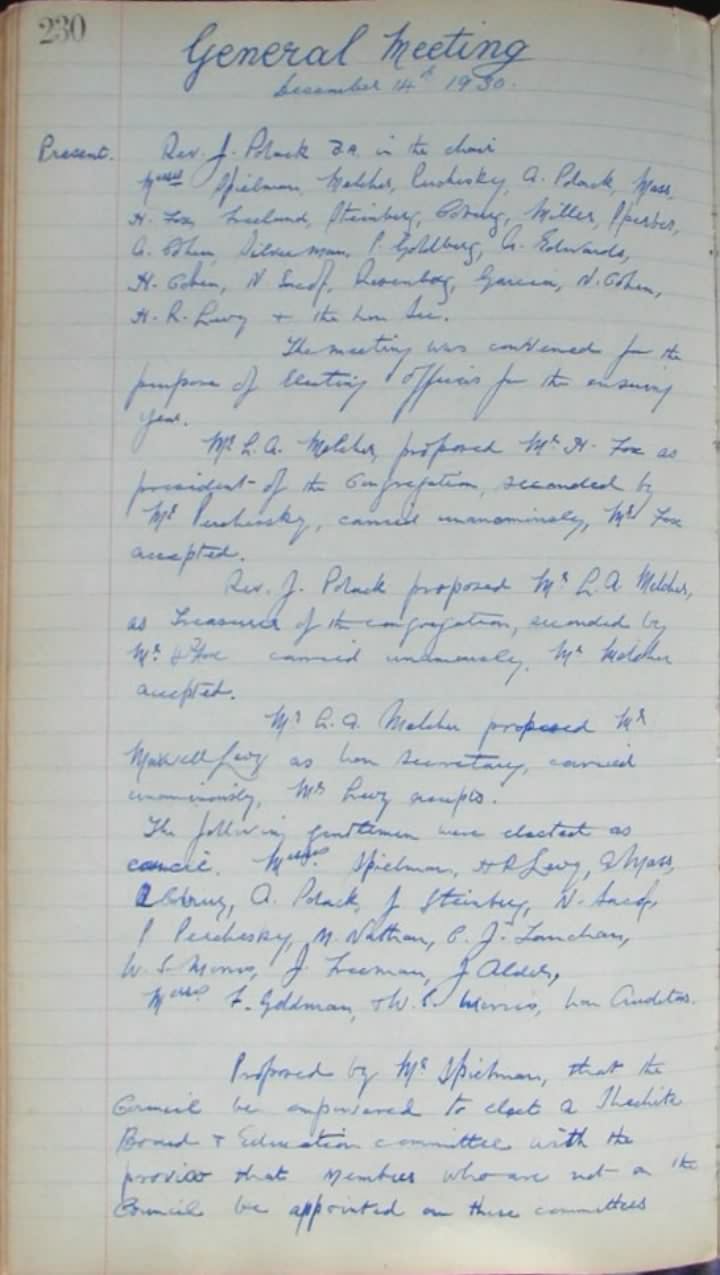 230
General Meeting
December 14th 1930.
Present. Rev. J. Polack B.A. in the chair
Messrs Spielman, Melcher, Pechesky, A. Polack, Mass,
H. Fox, Freeland, Steinberg, Miller,
G. Cohen, Silverman, P. Goldberg, G. Edwards,
H. Cohen, N. Sacof, Rosenberg, Garcia, N. Cohen,
H. R. Levy + the hon Sec.
The meeting was convened for the
purpose of electing officers for the ensuing
year.
Mr L. A. Melcher, proposed Mr H. Fox as
president of the Congregation, seconded by
Mr Perchesky, carried unanimously, Mr Fox
accepted.
Rev. J. Polack proposed Mr L. A Melcher,
as Treasurer of the congregation, seconded by
Mr H Fox carried unamously, Mr Melcher
accepted.
Mr L. A. Melcher proposed Mr
Maxwell Levy as hon Secretary, carried
unaminously, Mr Levy accepts.
The following gentlemen were elected as
council. Messrs. Spielman, H R Levy, Mass,
A. Polack, J Steinberg, N. Sacof,
P Perchesky, M. Nathan, C. J.
W. S. Morris, J. Freeman, J Alder,
Messrs F. Goldman, + W. S. Morris, hon Auditors.
Proposed by Mr Spielman, that the
Council be empowered to elect a Shechita
Board + Education committee with the
proviso that members who are not on the
Council be appointed on these committees